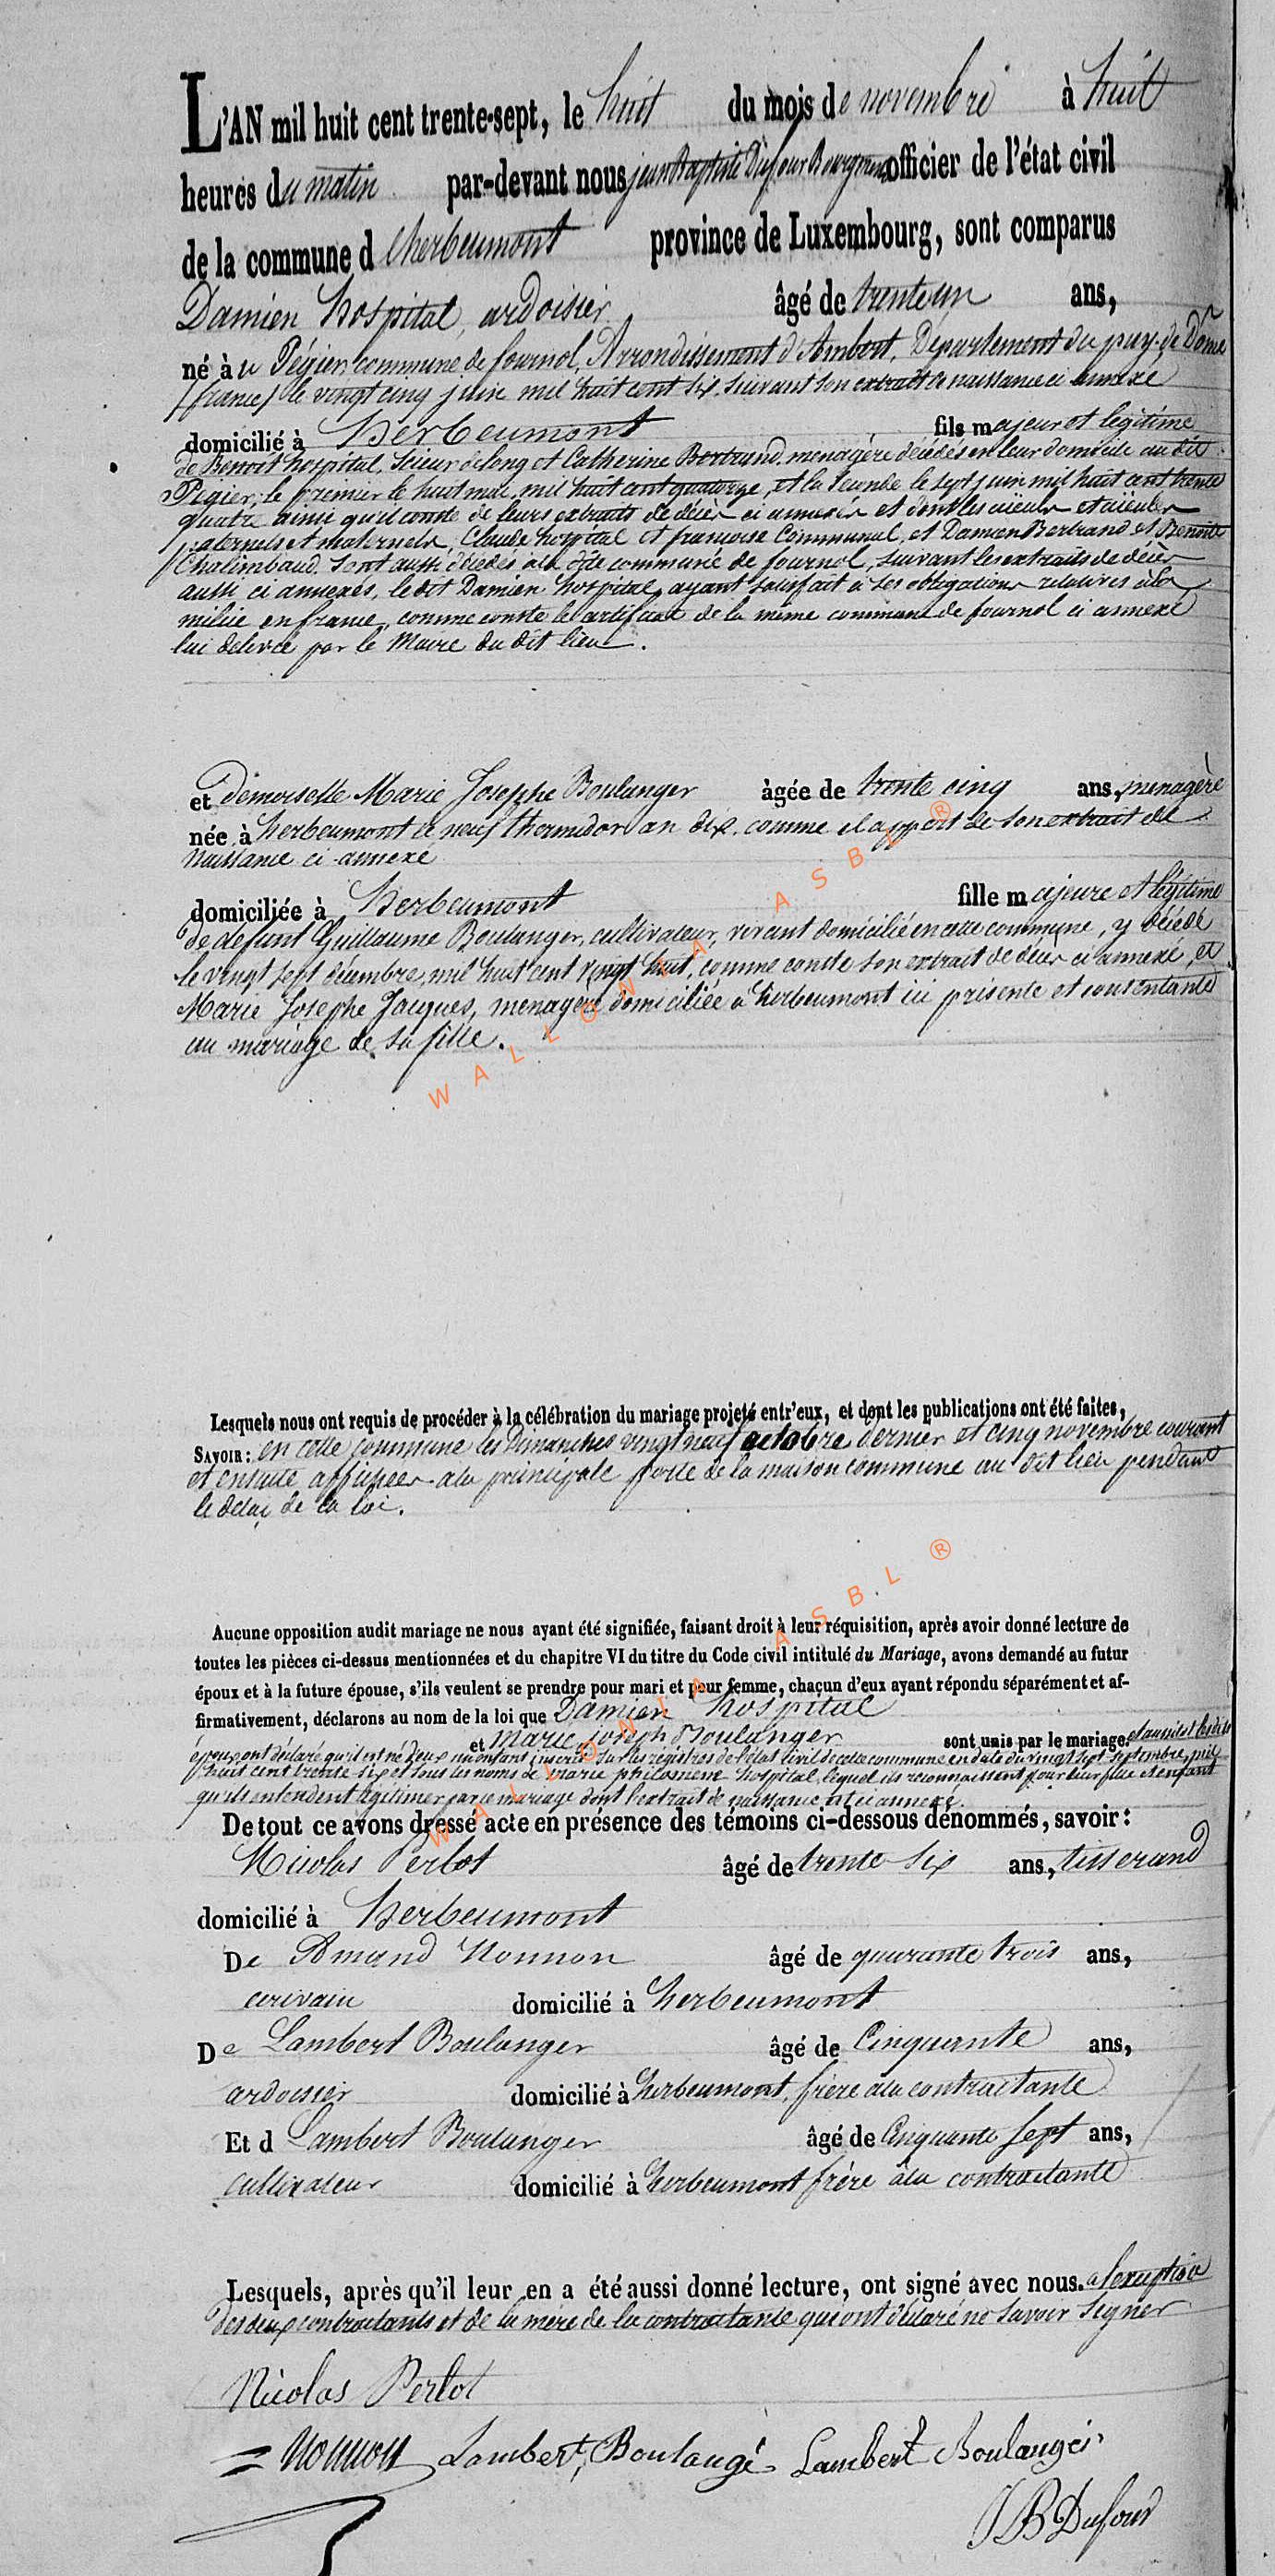 L'AN mil huit cent trente-sept, le huit du mois de novembre à huit
heures du matin par-devant nous jean Baptiste Dufour Bourgmestre officier de l'état civil
de la commune d'herbeumont province de Luxembourg, sont comparus
Damien hospital, ardoisier âgé de trente un ans,
né à u Pégier, commune de fournol, Arrondissement d'Ambert, Département du puy-de Dôme
(france) le vingt cinq juin mil huit cent six, suivant son extrait de naissance ci annexé
domicilié à Herbeumont fils majeur et légitime
de Benoit hospital, scieur de long et Catherine Bertrand, menagère décédés en leur domicile au dit
Pégier, le premier le huit mai mil huit cent quatorze, et la seconde le sept juin mil huit cent trente
quatre ainsi qu'il conste de leurs extraits de décès ci annexés et dont les aïeuls et aïeules
paternels et maternels, Claude hospital et françoise Communal, et Damien Bertrand et Benoite
Chalimbaud sont aussi décédés à la dite commune de fournol, suivant les extraits de décès
aussi ci annexés, le dit Damien hospital, ayant satisfait à ses obligations relatives à la
milice en france, comme conste le certificat de la même commune de fournol ci annexé
lui delivré par le Maire du dit lieu.
et demoiselle Marie Josephe Boulanger âgée de trente cinq ans, menagère
née à herbeumont le neuf thermidor an dix, comme il appert de son extrait de
naissance ci-annexé
domiciliée à Herbeumont fille majeure et légitime
de defunt Guillaume Boulanger, cultivateur, vivant domicilié en cette commune, y décédé
le vingt sept décembre, mil huit cent vingt huit, comme conste son extrait de décès ci annexé, et
Marie Josephe Jacques, menagère, domiciliée à herbeumont ici présente et consentante
au mariage de sa fille.
WALLONIA ASBL ®
Lesquels nous ont requis de procéder à la célébration du mariage projeté entr'eux, et dont les publications ont été faites,
SAVOIR : en cette commune les Dimanches vingt neuf octobre dernier et cinq novembre courant
et ensuite affichées à la principale porte de la maison commune au dit lieu pendant
le délai de la loi.
Aucune opposition audit mariage ne nous ayant été signifiée, faisant droit à leur réquisition, après avoir donné lecture de
toutes les pièces ci-dessus mentionnées et du chapitre VI du titre du Code civil intitulé du Mariage, avons demandé au futur
époux et à la future épouse, s'ils veulent se prendre pour mari et pour femme, chaçun d'eux ayant répondu séparément et af-
firmativement, déclarons au nom de la loi que Damien hospital
et Marie joseph Boulanger sont unis par le mariage. et aussitôt les dits
époux ont déclaré qu'il est né d'eux un enfant inscrit sur les registres de l'état civil de cette commune en date du vingt sept septembre, mil
huit cent trente six et sous les noms de marie philomene hospital, lequel ils reconnaissent pour leur fille et enfant
qu'ils entendent légitimer par ce mariage dont l'extrait de naissance est ci annexé.
WALLONIA ASBL ®
De tout ce avons dressé acte en présence des témoins ci-dessous dénommés, savoir :
Nicolas Perlot âgé de trente six ans, tisserand
domicilié à Herbeumont
De Amand Nonnon âgé de quarante trois ans,
ecrivain domicilié à herbeumont
De Lambert Boulanger âgé de Cinquante ans,
ardoisier domicilié à herbeumont, frère à la contractante
Et d Lambert Boulanger âgé de Cinquante sept ans,
cultivateur domicilié à herbeumont frère à la contractante
Lesquels, après qu'il leur en a été aussi donné lecture, ont signé avec nous. a l'exception
des deux contractants et de la mère de la contractante qui ont déclaré ne savoir signer
Nicolas Perlot
Nonnon Lambert Boulangé Lambert Boulanger
J B Dufour